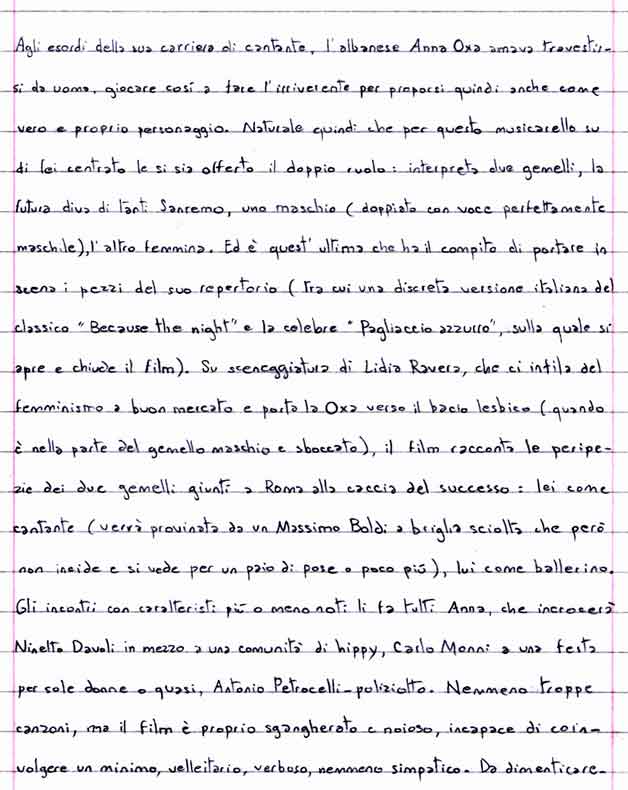 Agli esordi della sua carriera di cantante, l'albanese Anna Oxa amava travestir-
si da uomo, giocare così a fare l'irriverente per proporsi quindi anche come
vero e proprio personaggio. Naturale quindi che per questo musicarello su
di lei centrato le si sia offerto il doppio ruolo: interpreta due gemelli, la
futura diva di tanti Sanremo, uno maschio (doppiato con voce perfettamente
maschile), l'altro femmina. Ed è quest'ultima che ha il compito di portare in
scena i pezzi del suo repertorio (tra cui una discreta versione italiana del
classico "Because the night" e la celebre "Pagliaccio azzurro", sulla quale si
apre e chiude il film). Su sceneggiatura di Lidia Ravera, che ci infila del
femminismo a buon mercato e porta la Oxa verso il bacio lesbico (quando
è nella parte del gemello maschio e sboccato), il film racconta le peripe-
zie dei due gemelli giunti a Roma alla caccia del successo: lei come
cantante (verrà provinata da un Massimo Boldi a briglia sciolta che però
non incide e si vede per un paio di pose o poco più), lui come ballerino.
Gli incontri con caratteristi più o meno noti li fa tutti Anna, che incrocerà
Ninetto Davoli in mezzo a una comunità di hippy, Carlo Monni a una festa
per sole donne o quasi, Antonio Petrocelli-poliziotto. Nemmeno troppe
canzoni, ma il film è proprio sgangherato e noioso, incapace di coin-
volgere un minimo, velleitario, verboso, nemmeno simpatico. Da dimenticare.